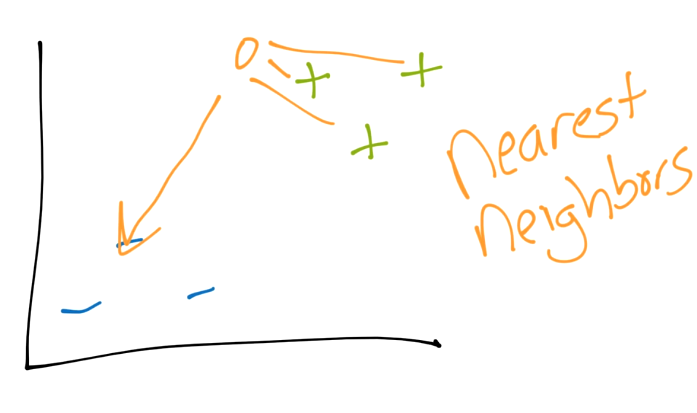 nearest
neighbors